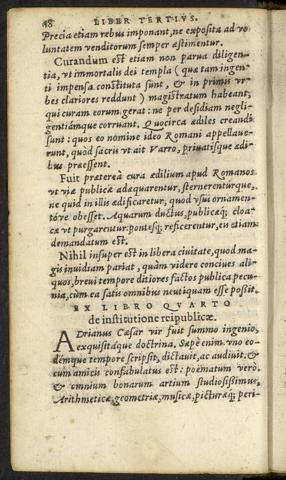 48 LIBER TERTIVS.
Precia etiam rebus imponant, ne exposita ad vo
luntatem venditorum semper æstimentur.
Curandum est etiam non parua diligen-
tia, vt immortalis dei templa (quæ tam ingen-
ti impensa constituta sunt, & in primis vr-
bes clariores reddunt) magistratum habeant,
qui curam eorum gerat: ne per desidiam negli-
gentiámque corruant. Quocirca ædiles creandi
sunt: quos eo nomine ideo Romani appellaue-
runt, quòd sacris vt ait Varro, priuatisque ædi-
bus præessent.
Fuit prætereà cura ædilium apud Romanos
vt viæ publicæ adæquarentur, sternerenturque,
ne quid in illis ædificaretur, quod vsui ornamen-
tóve obesset. Aquarum ductus, publicæq; cloa-
cæ vt purgarentur: pontésq; reficerentur, eis etiam
demandatum est.
Nihil insuper est in libera ciuitate, quod ma-
gis inuidiam pariat, quàm videre conciues ali-
quos, breui tempore ditiores factos publica pecu-
nia, cùm ea satis omnibus neutiquam esse possit.
EX LIBRO QVARTO
de institutione reipublicæ.
ADrianus Cæsar vir fuit summo ingenio,
exquisitáque doctrina. Sæpè enim vno eo-
démque tempore scripsit, dictauit, ac audiuit, &
cum amicis confabulatus est: poëmatum verò
& omnium bonarum artium studiosissimus,
Arithmeticæ, geometriæ, musicæ, picturæq; peri-